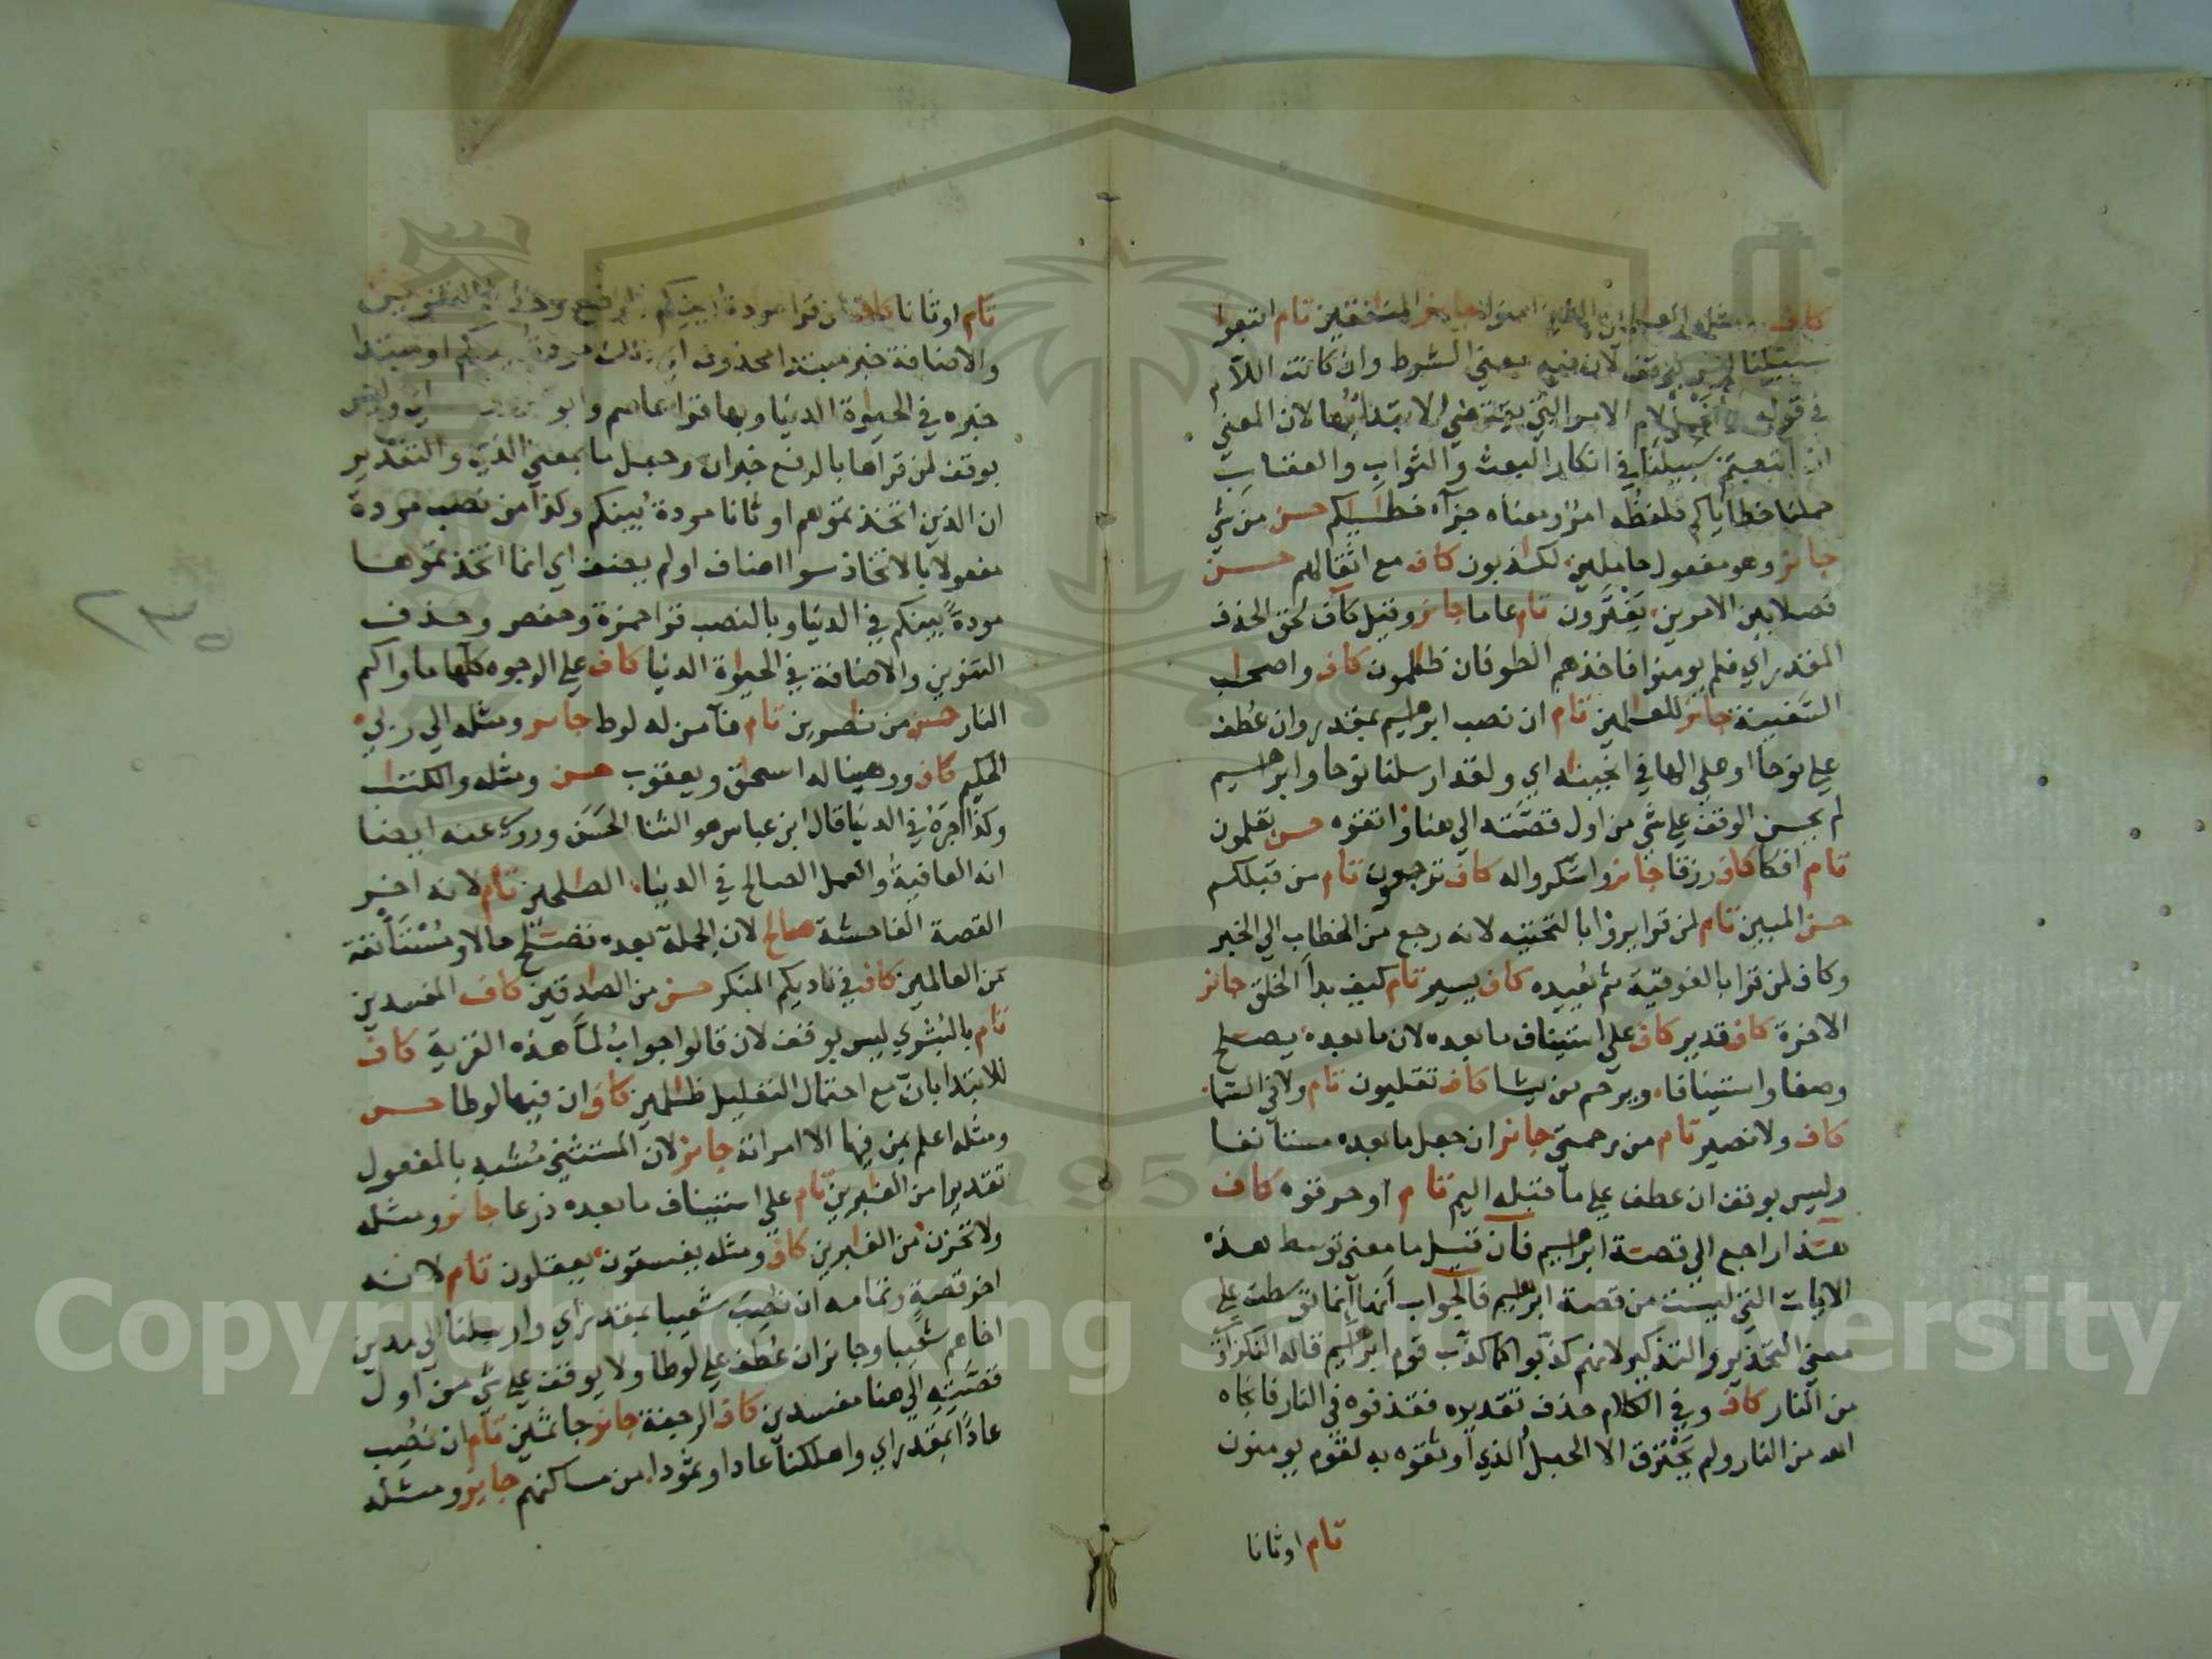 كاف ومثله العالمين والذين امنوا جائز المنافقين تام اتبعوا
سبيلنا ليس بوقف لان فيه معني الشرط وان كانت اللام
في قوله ولنحمل لام الامر التي يقتضي الابتداء بها لان المعني
ان اتبعتم سبيلنا في انكار البعث والثواب والعقاب
حملنا خطاياكم فلفظه امر ومعناه جزاء خطيكم حسن من شي
جائز وهو مفعول حاملين لكذبون كاف مع اثقالهم حسن
فصلا بين الامرين يفترون تام عاما جائز وقيل كاف لحق الحذف
المقدر اي فلم يومنوا فاخذهم الطوفان ظلمون كاف واصحاب
السفينة جائز للعلمين تام ان نصب ابرهيم بمقدر وان عطف
علي نوحا او علي الها في انجيناه اي ولقد ارسلنا نوحا وابرهيم
لم يحسن الوقف علي شي من اول قصته الي هنا واتقوه حسن تعلمون
تام افكا كاف رزقا جائز واشكروا له كاف ترجعون تام من قبلكم
حسن المبين تام لمن قرا يروا بالتحتية لانه رجع من الخطاب الي الخبر
وكاف لمن قرا بالفوقية ثم يعيده كاف يسير تام كيف بدا الخلق جائز
الاخرة كاف قدير كاف علي استيناف ما بعده لان ما بعده يصلح
وصفا واستينافا ويرحم من يشا كاف تقلبون تام ولا في السما
كاف ولا نصير تام من رحمتي جائز ان جعل ما بعده مستانفا
وليس بوقف ان عطف علي ما قبله اليم تام او حرقوه كاف
هذا راجع الي قصة ابرهيم فان قيل ما معني توسط هذه
الايات التي ليست من قصة ابرهيم فالجواب انها انما توسطت علي
معني التحذير والتذكير لانهم كذبوا كما كذب قوم ابرهيم قاله النكزاوي
من النار كاف وفي الكلام حذف تقديره فقذفوه في النار فانجاه
الله من النار ولم يحترق الا الحبل الذي اوثقوه به لقوم يومنون
تام اوثانا
تام اوثانا كاف لمن قرا مودة بينكم بالرفع
والاضافة خبر مبتدا محذوف اي ذلك مودة بينكم او مبتدا
خبره في الحيوة الدنيا وبها قرا عاصم وابو وليس
بوقف لمن قراها بالرفع خبر ان وجعل ما بمعني الذي والتقدير
ان الذين اتخذتموهم اوثانا مودة بينكم وكذا من نصب مودة
مفعولا بالاتخاذ سوا اضاف او لم يضف اي انما اتخذتموها
مودة بينكم في الدنيا وبالنصب قرا حمزة وحفص وحذف
التنوين والاضافة في الحيوة الدنيا كاف علي الوجوه كلها ماواكم
النار حسن من نصرين تام فآمن له لوط جائز ومثله الي ربي
الحكيم كاف ووهبنا له اسحق ويعقوب حسن ومثله والكتب
وكذا اجره في الدنيا قال ابن عباس هو الثنا الحسن وروي عنه ايضا
انه العافية والعمل الصالح في الدنيا الصلحين تام لانه اخر
القصة الفاحشة صالح لان الجملة بعده تصلح حالا ومستانفة
من العالمين كاف في ناديكم المنكر حسن من الصادقين كاف المفسدين
تام بالبشري ليس بوقف لان قالوا جواب لما هذه القرية كاف
للابتدا بان مع احتمال التعليل ظلمين كاف ان فيها لوطا حسن
ومثله اعلم بمن فيها الا امراته جائز لان المستثني مشبه بالمفعول
تقديرا من الغبرين تام علي استيناف ما بعده ذرعا جائز ومثله
ولا تحزن من الغبرين كاف ومثله يفسقون يعقلون تام لانه
اخر قصة وتمامه ان نصبت شعيبا بمقدر اي وارسلنا الي مدين
اخاهم شعيبا وجائز ان عطف علي لوطا ولا يوقف علي شي من اول
قصته الي هنا مفسدين كاف الرجفة جائز جاثمين تام ان نصب
عادا بمقدر اي واهلكنا عادا وثمودا من مساكنهم جائز ومثله